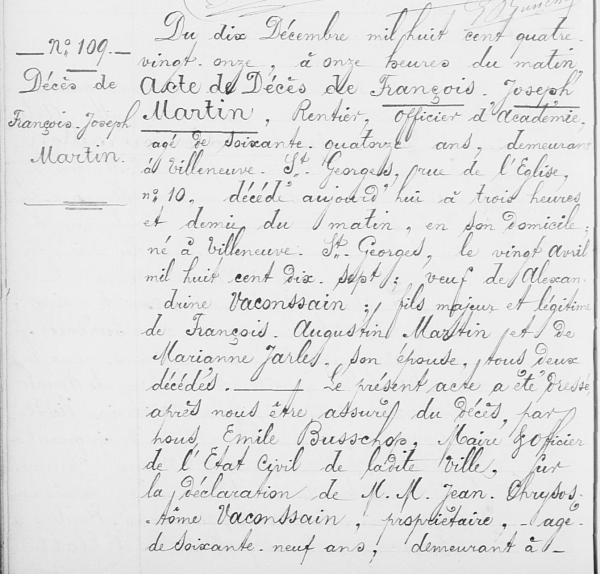 N° 109.
Décès de
François-Joseph
Martin.
Du dix Décembre mil huit cent quatre-
vingt-onze, à onze heures du matin,
Acte de Décès de François-Joseph
Martin, Rentier, Officier d'Académie,
agé de soixante-quatorze ans, demeurant
à Villeneuve-St-Georges, rue de l'Eglise,
n° 10, décédé aujourd'hui à trois heures
et demie du matin, en son domicile;
né à Villeneuve-St-Georges, le vingt Avril
mil huit cent dix-sept; veuf de Alexan-
drine Vaconssain; fils majeur et légitime
de François-Augustin Martin et de
Marianne Jarles, son épouse, tous deux
décédés. — Le présent acte a été dressé
après nous être assuré du décès, par
nous, Emile Busschop, Maire & Officier
de l'Etat Civil de ladite Ville, sur
la déclaration de M.M. Jean-Chrysos-
tôme Vaconssain, propriétaire, agé
de soixante-neuf ans, demeurant à -